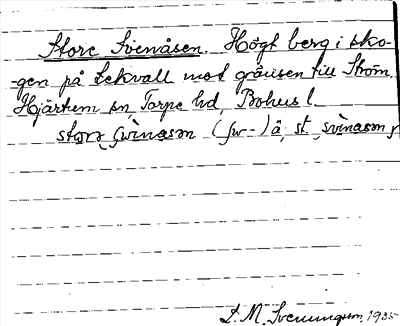 Store Svenåsen. Högt berg i sko-
-gen på Lekvall mot gränsen till Ström.
Hjärtum sn, Torpe hd, Bohus l.
stora svinasən (sv-) å, st svinasən
D. M. Svenungsson, 1935